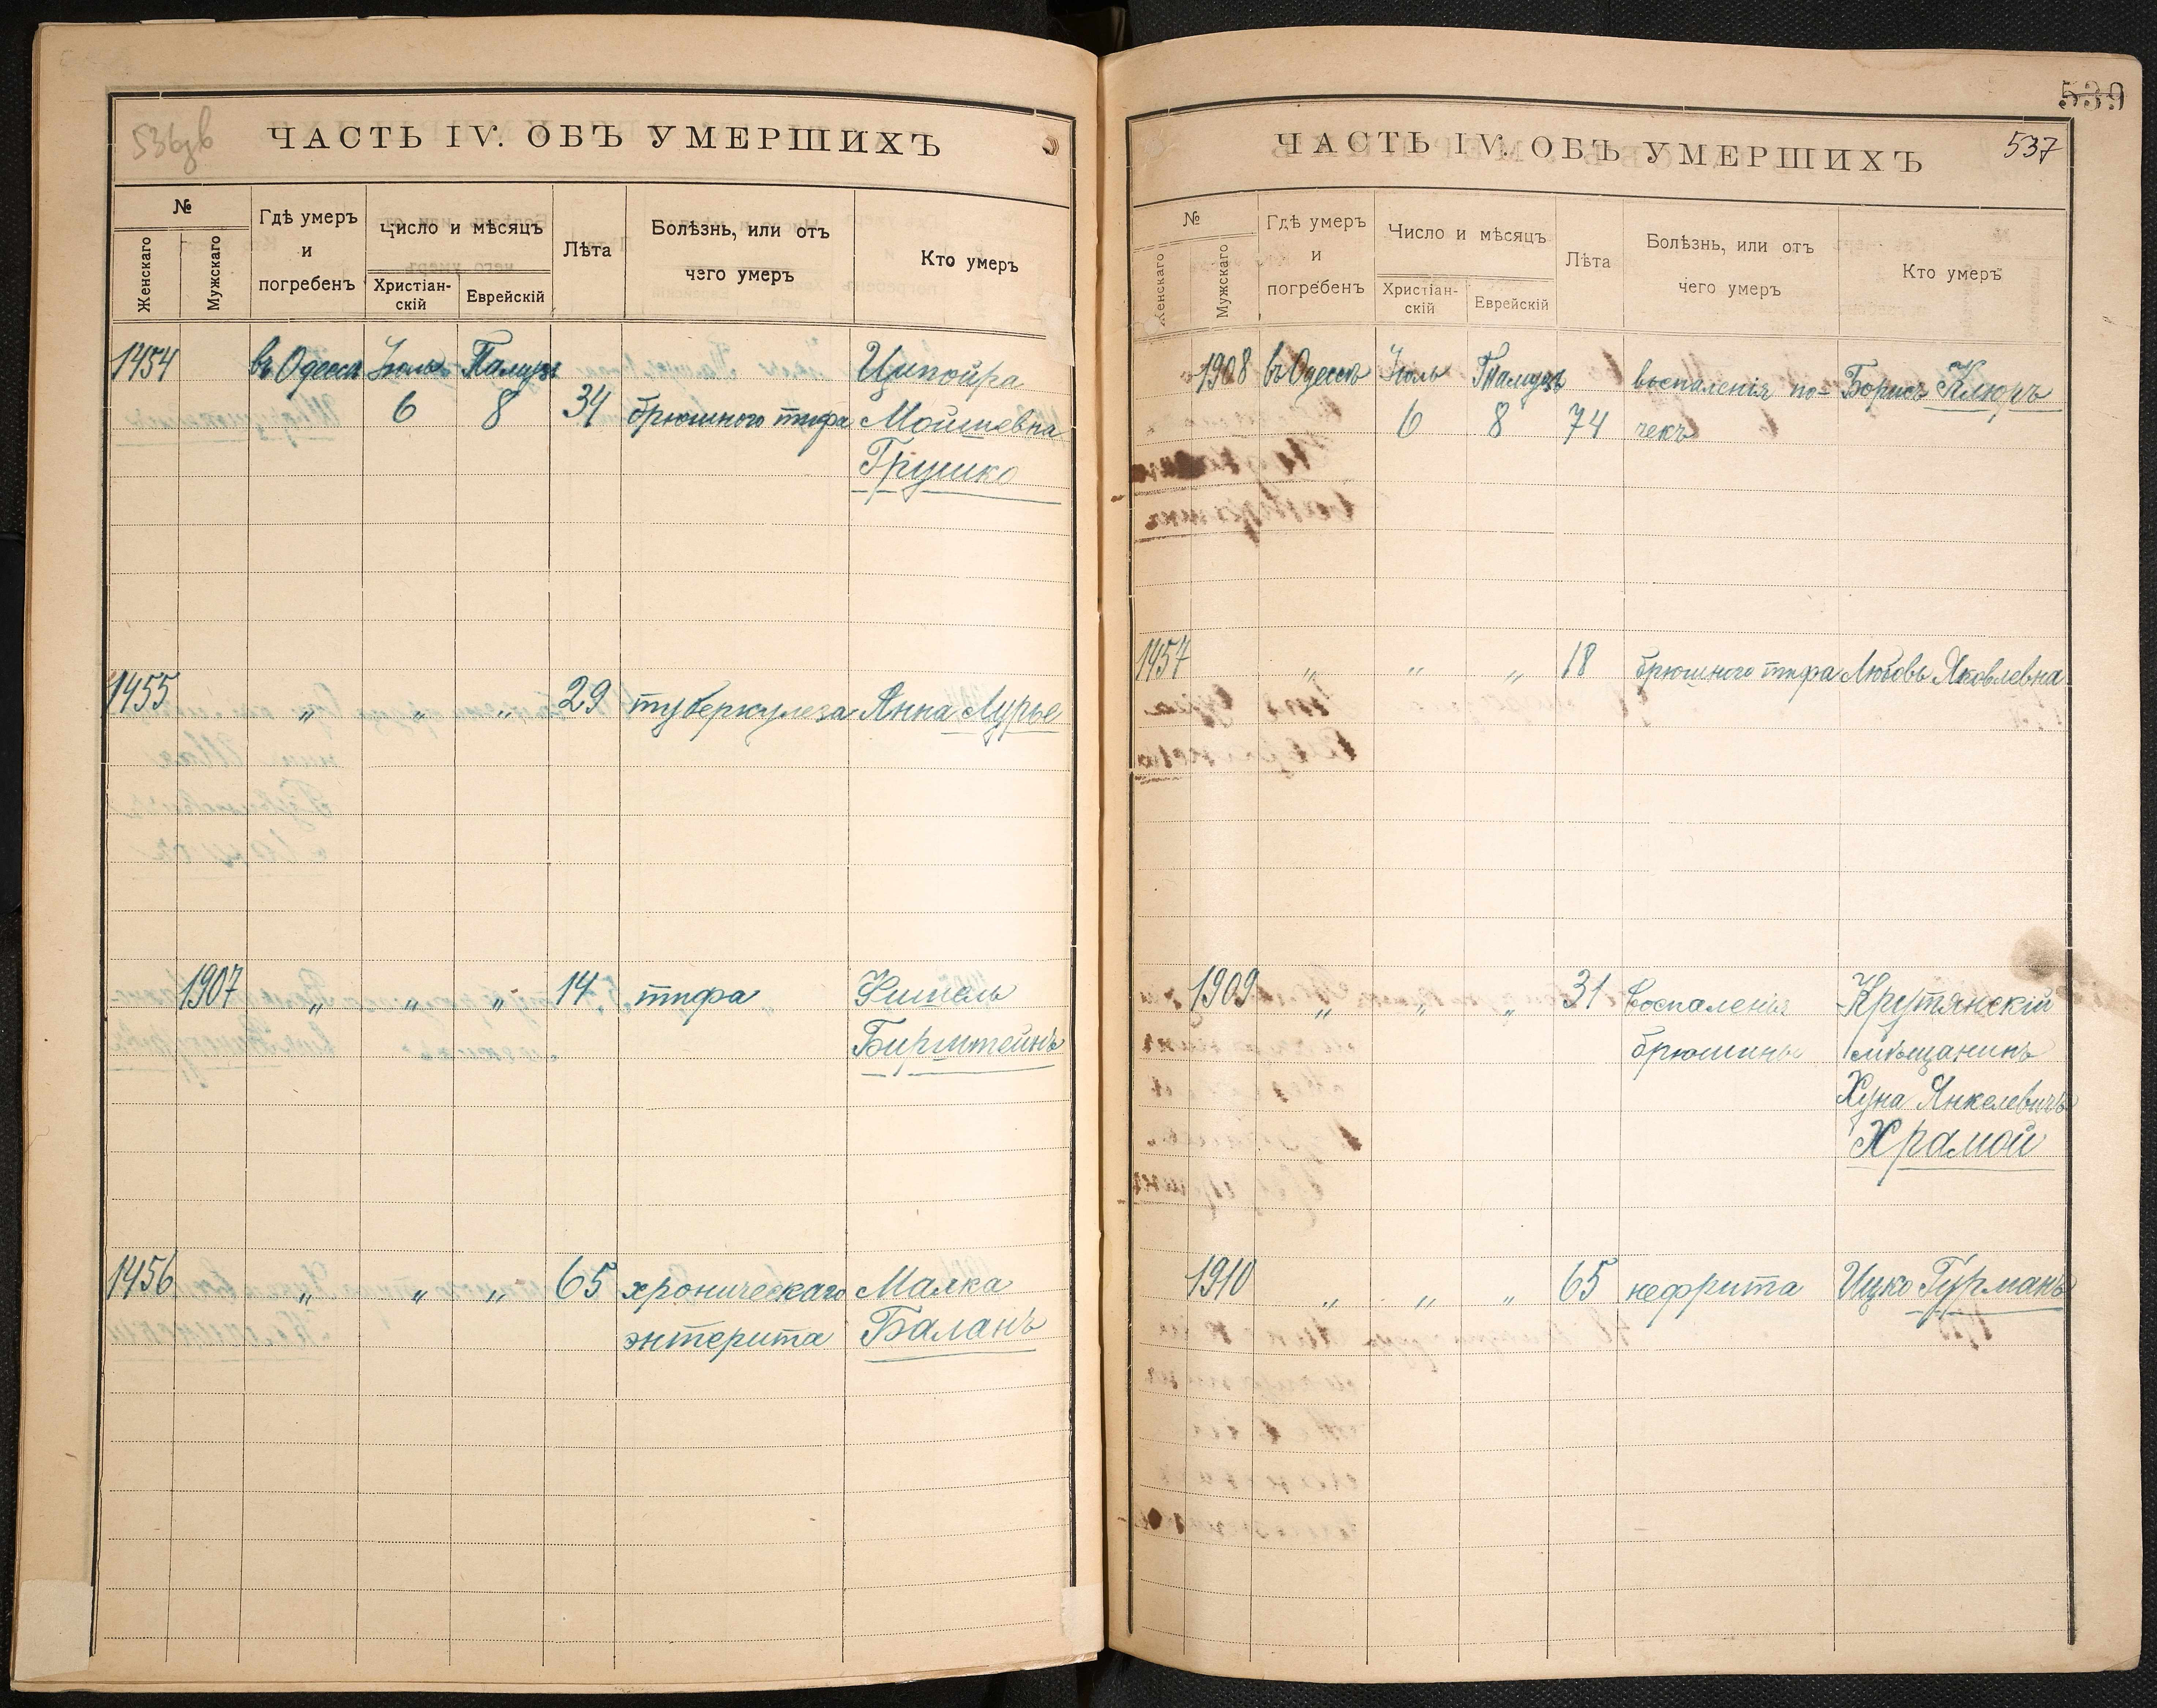 536зв
ЧАСТЬ IV. ОБЪ УМЕРШИХЪ
№
Женскаго
Мужскаго
Гдѣ умеръ
и
погребенъ
Число и мѣсяцъ
Христіан-
скій
Еврейскій
Лѣта
Болѣзнь, или отъ
чего умеръ
Кто умеръ
1454 въ Одессѣ Іюль Тамузъ Ципойра
6 8 34 брюшного тифа Мошиевна
Грушко
1455 „ „ „ 29 туберкулеза Анна Лурье
1907 „ „ „ 14 тифа Фишель
Бирштейнъ
1456 „ „ „ 65 хроническаго Малка
энтерита Баланъ
539
537
ЧАСТЬ IV. ОБЪ УМЕРШИХЪ
№
Женскаго
Мужскаго
Гдѣ умеръ
и
погребенъ
Число и мѣсяцъ
Христіан-
скій
Еврейскій
Лѣта
Болѣзнь, или отъ
чего умеръ
Кто умеръ
1908 въ Одессѣ Іюль Тамузъ воспаленія по- Борисъ Клюръ
6 8 74 чекъ
1457 „ „ „ 18 брюшного тифа Любовь Яковлевна
1909 „ „ „ 31 воспаленія Крутянскій
брюшины мѣщанинъ
Хуна Янкелевичъ
Храмой
1910 „ „ „ 65 нефрита Ицко Гурманъ